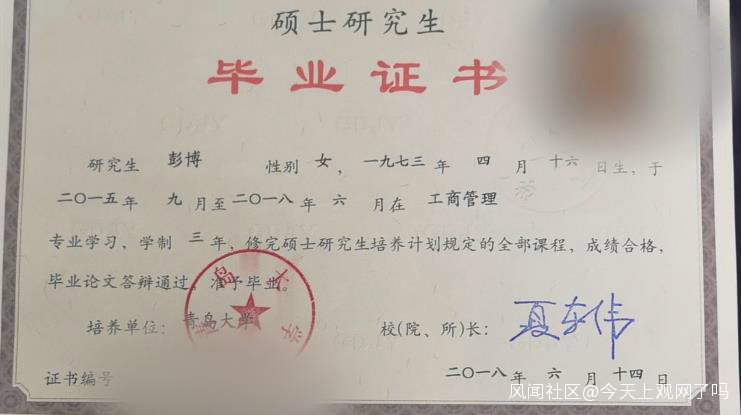 硕士研究生
毕业证书
研究生 彭博 性别 女，一九七三 年 四 月 十六 日生，于
二〇一五年 九 月至二〇一八 年 六 月在 工商管理
专业学习，学制 三 年，修完硕士研究生培养计划规定的全部课程，成绩合格，
毕业论文答辩通过，准予毕业。
青岛大学
培养单位：青岛大学 校(院、所)长：夏东伟
证书编号 二〇一八 年 六 月 十四 日
风闻社区@今天上观网了吗